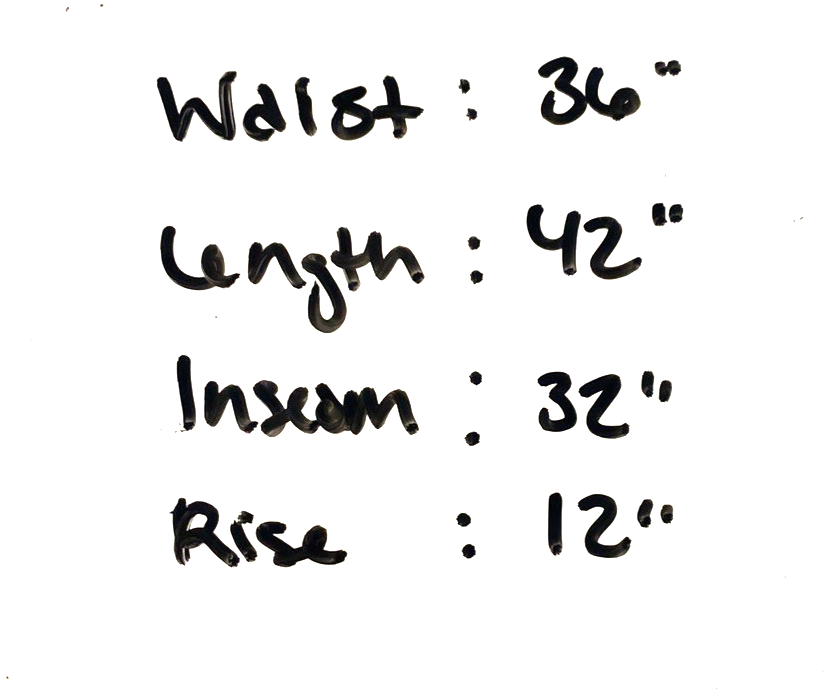 Waist : 36"
Length : 42"
Inseam : 32"
Rise : 12"